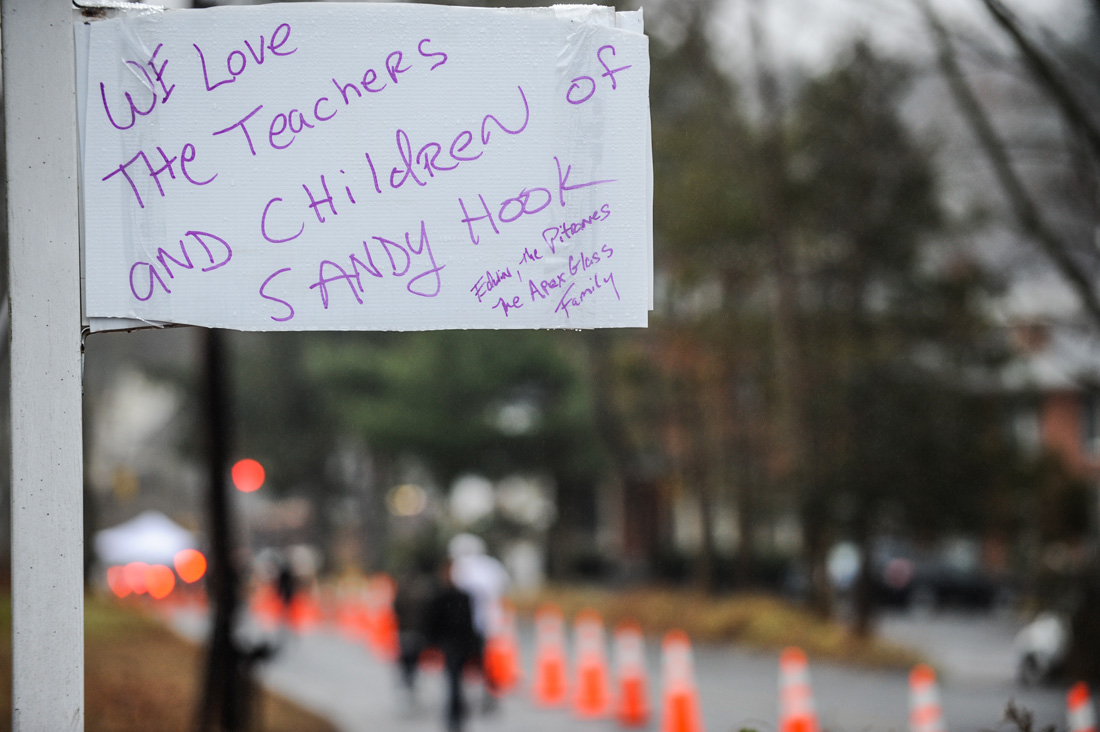 WE Love
THe Teachers
AND CHildReN of
SANDY Hook
Edwin, the Pitrones
The Apex Glass
Family